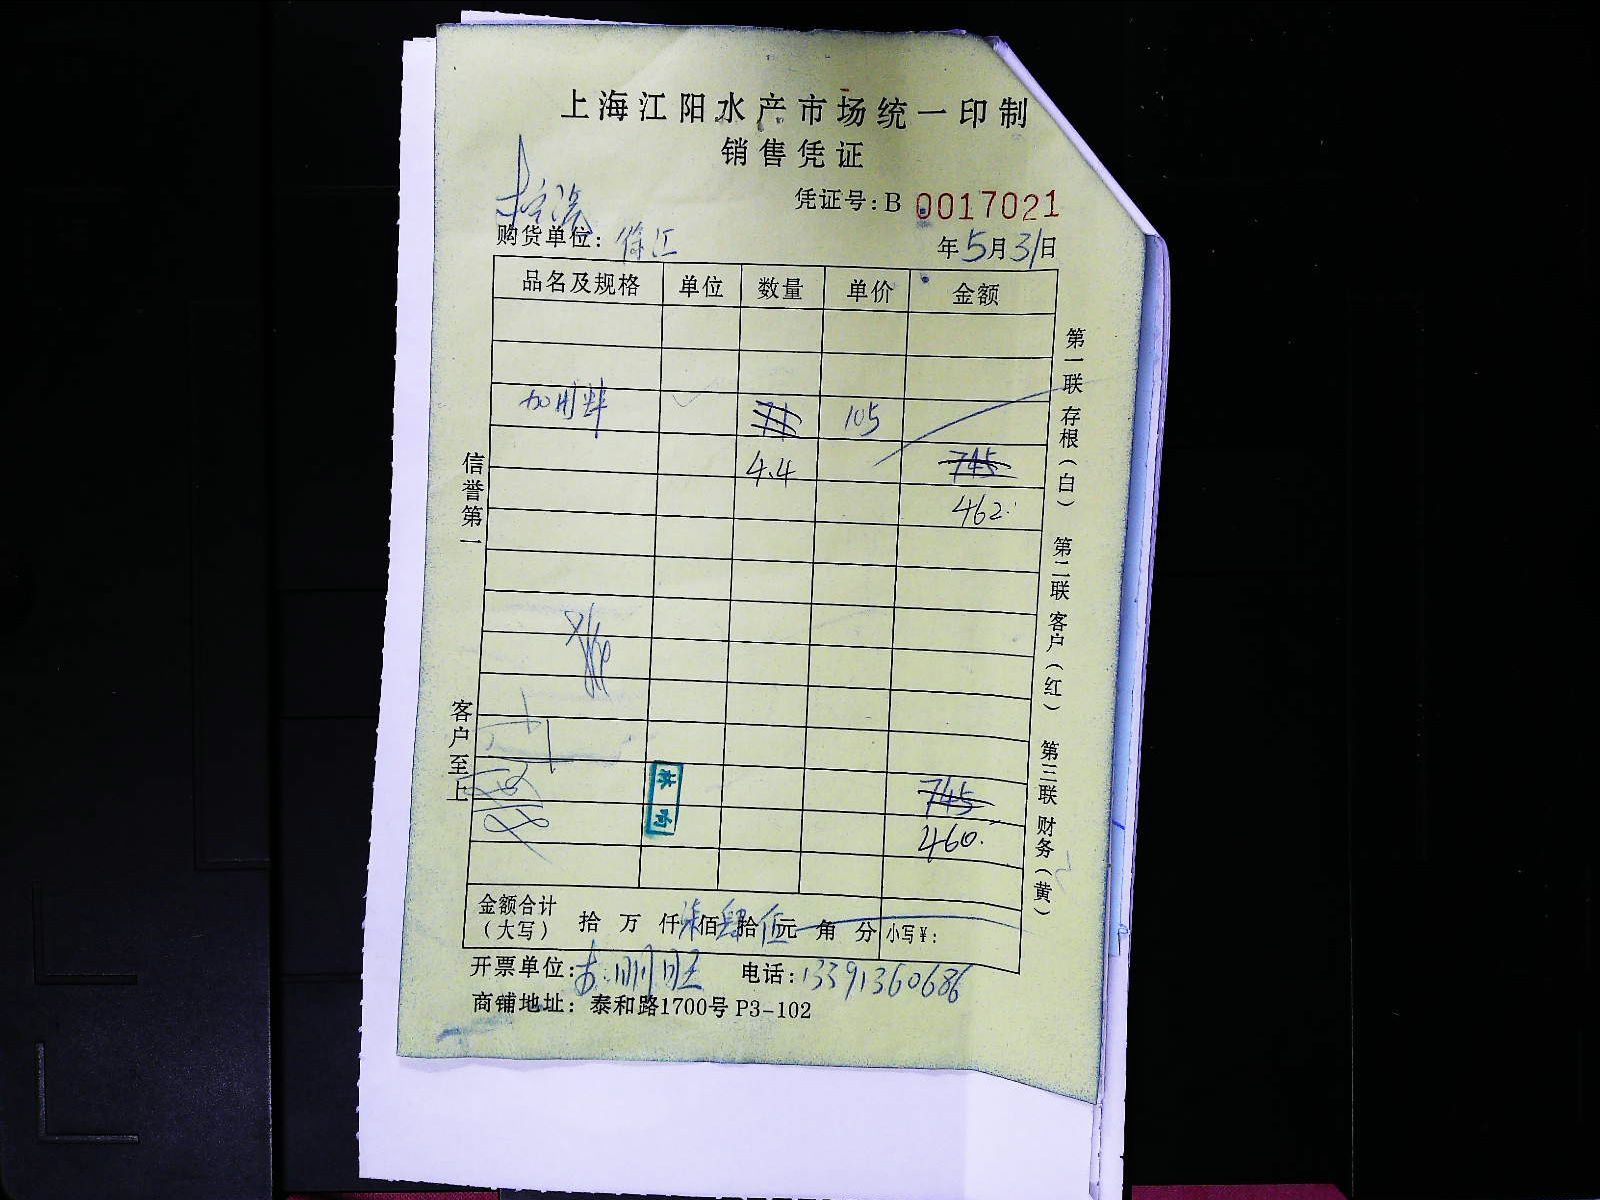 上海江阳水产市场统一印制
销售凭证
凭证号: B 0017021
购货单位: 徐江
年5月31日
品名及规格 单位 数量 单价 金额
71 105
4.4 745
462.
745
460.
金额合计(大写) 拾 万 仟 柒佰 肆拾 伍元 角 分 小写¥:
开票单位: 电话: 13391360686
商铺地址: 泰和路1700号 P3-102
信誉第一
客户至上
第一联 存根(白) 第二联 客户(红) 第三联 财务(黄)